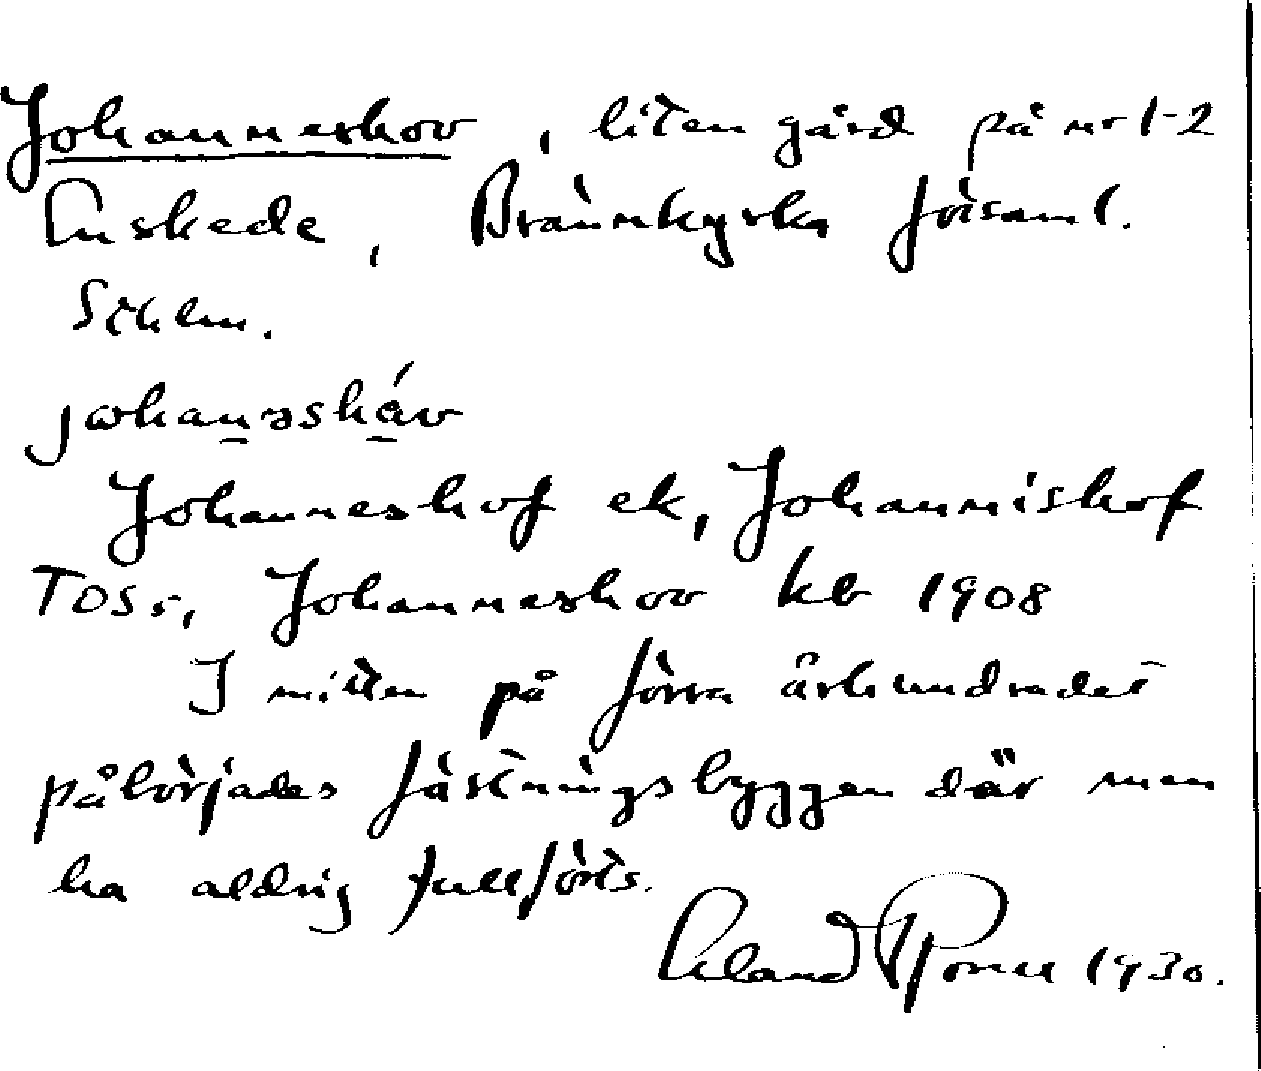 Johanneshov, liten gård på nr 1-2
Enskede, Brännkyrka församl.
Sthlm.
johanəsháv
Johanneshof ek, Johannishof
Johanneshov kb 1908
I mitten på förra århundradet
påbörjades fästningsbyggen där men
ha aldrig fullförts.
Erland 1930.